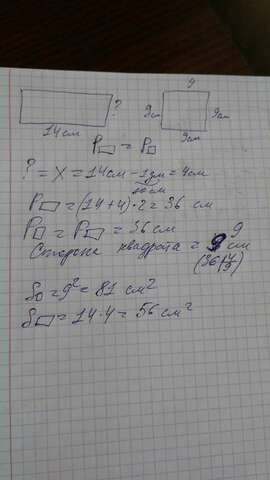 9
?
9см 9см
14см 9см
P▭ = P□
? = X = 14см - 1дм = 4см
10см
P▭ = (14+4)·2 = 36 см
P□ = P▭ = 36 см
Сторона квадрата = 9 см
9
S□ = 9² = 81 см²
S▭ = 14·4 = 56 см²